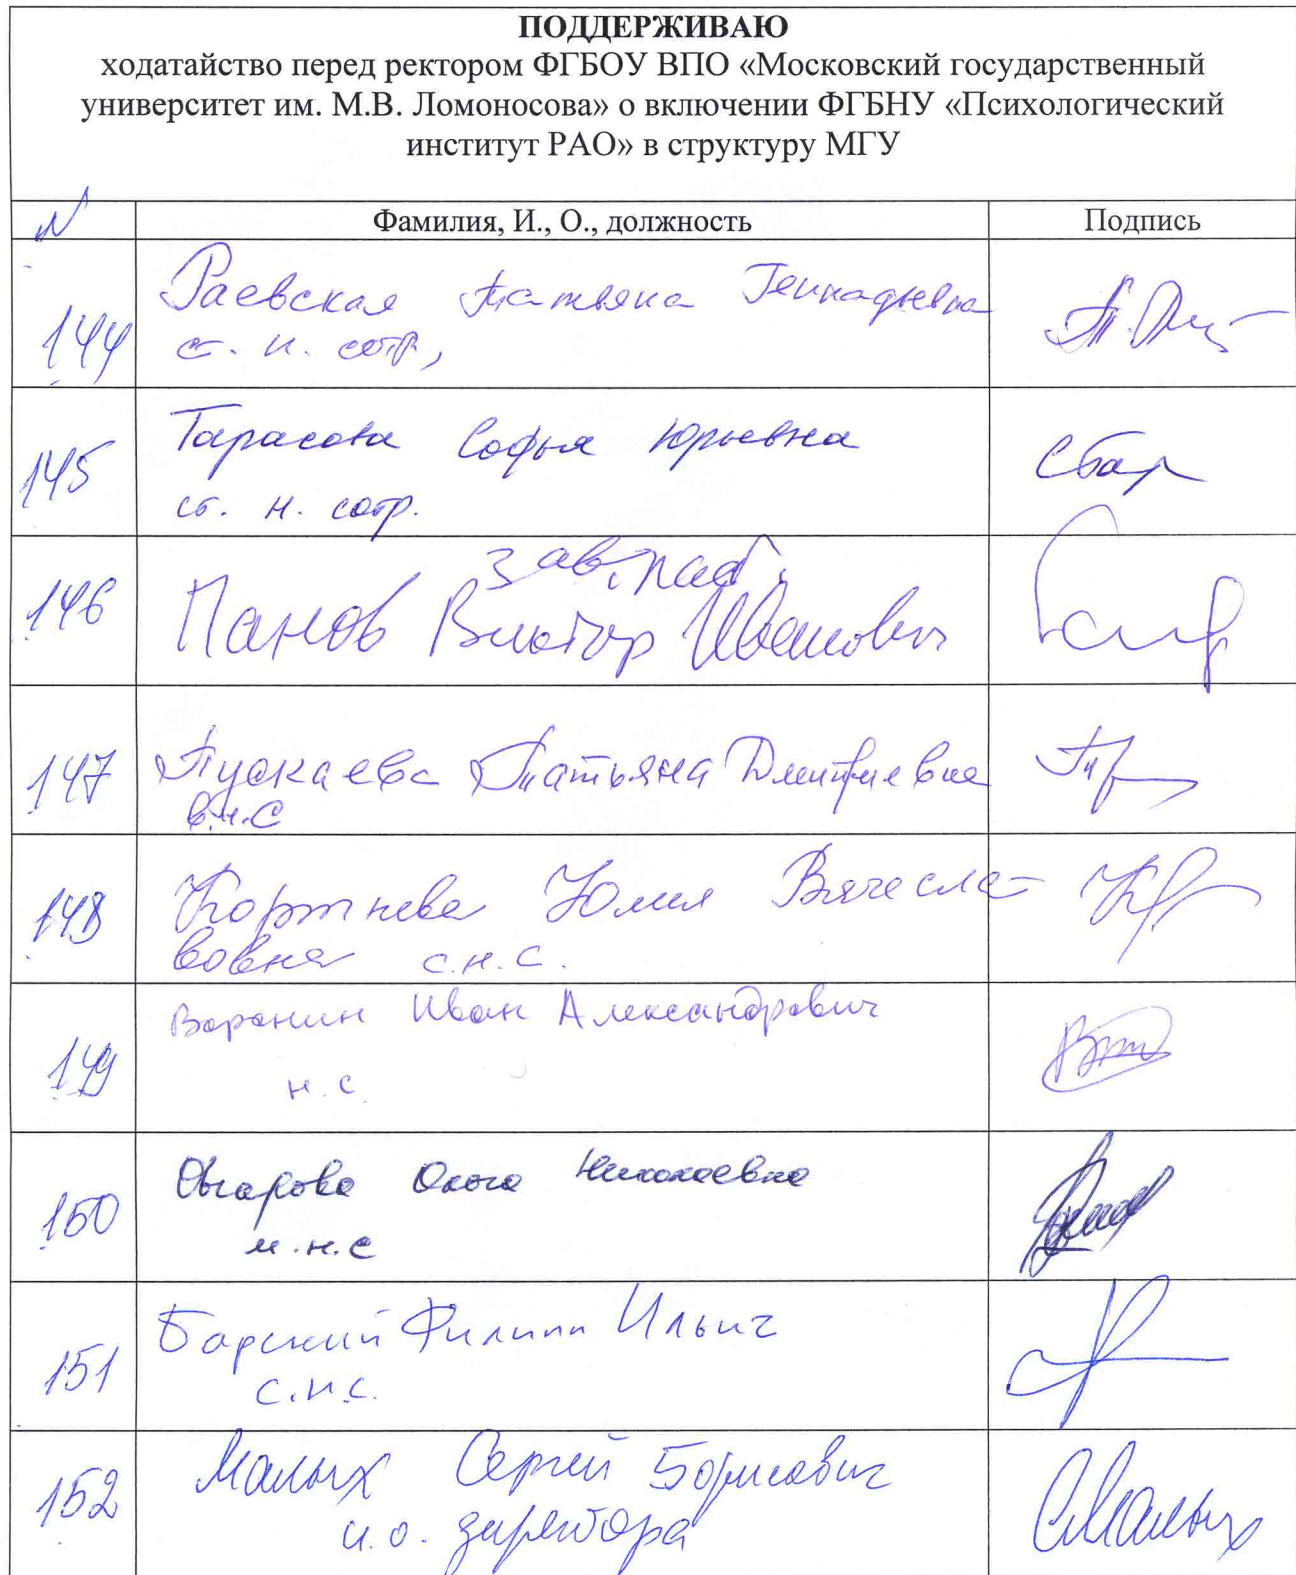 ПОДДЕРЖИВАЮ
ходатайство перед ректором ФГБОУ ВПО «Московский государственный
университет им. М.В. Ломоносова» о включении ФГБНУ «Психологический
институт РАО» в структуру МГУ
N Фамилия, И., О., должность Подпись
144 Раевская Татьяна Геннадьевна
ст. н. сотр,
145 Тарасова Софья Юрьевна
ст. н. сотр.
зав.
146 Панов Виктор Иванович
147 Татьяна Дмитриевна
в.н.с
148 Юлия Вячесла-
вовна с.н.с.
149 Воронин Иван Александрович
н.с.
150 Ольга Николаевна
м.н.с
151 Барский Филипп Ильич
с.н.с.
152 Малых Сергей Борисович
и.о. директора